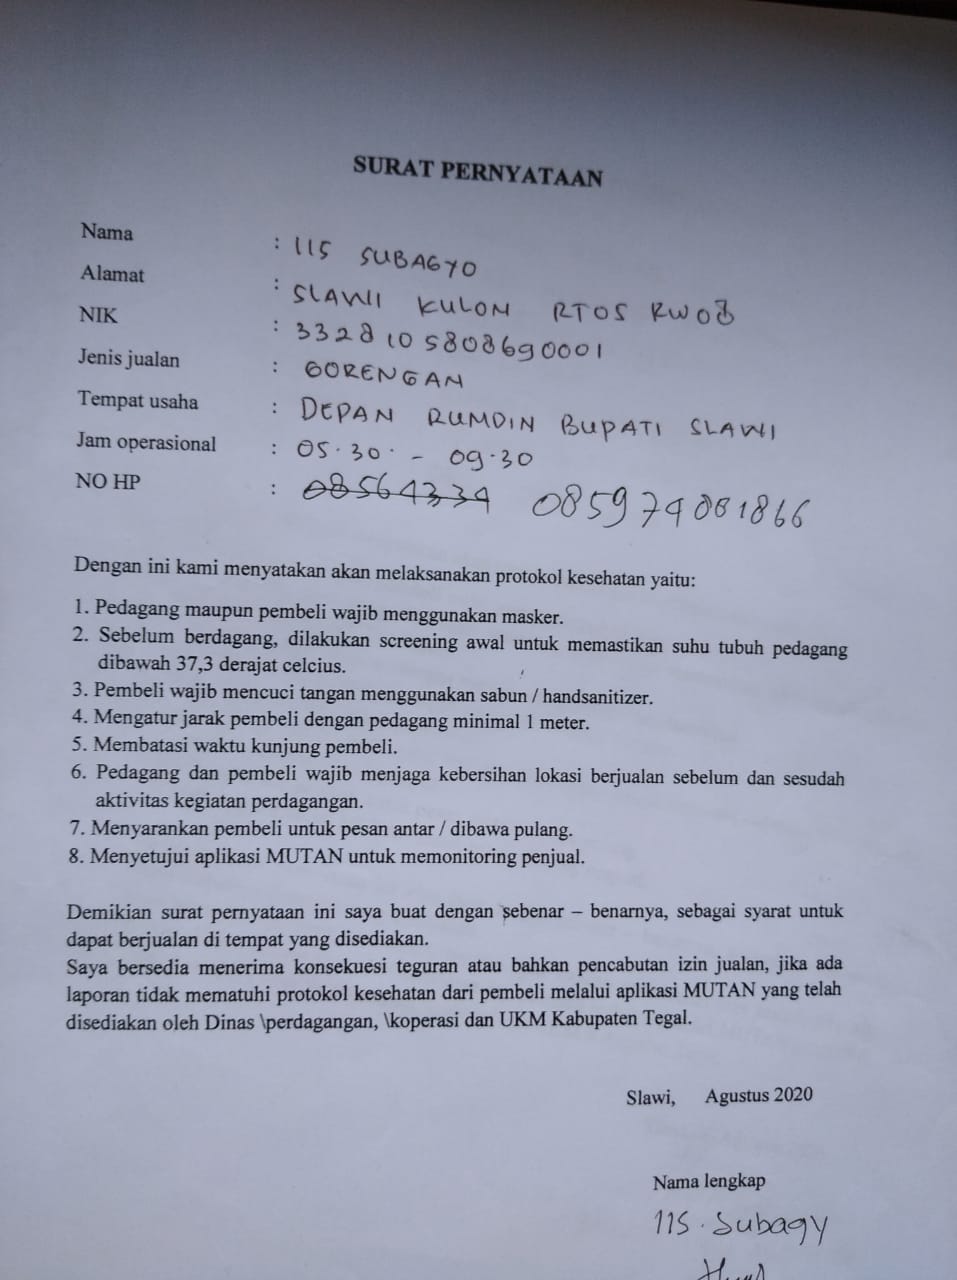 SURAT PERNYATAAN
Nama : IIS SUBAGYO
Alamat : SLAWI KULON RT05 RW08
NIK : 3328105808690001
Jenis jualan : GORENGAN
Tempat usaha : DEPAN RUMDIN BUPATI SLAWI
Jam operasional : 05.30 - 09.30
NO HP : 08564334 085974081866
Dengan ini kami menyatakan akan melaksanakan protokol kesehatan yaitu:
1. Pedagang maupun pembeli wajib menggunakan masker.
2. Sebelum berdagang, dilakukan screening awal untuk memastikan suhu tubuh pedagang
dibawah 37,3 derajat celcius.
3. Pembeli wajib mencuci tangan menggunakan sabun / handsanitizer.
4. Mengatur jarak pembeli dengan pedagang minimal 1 meter.
5. Membatasi waktu kunjung pembeli.
6. Pedagang dan pembeli wajib menjaga kebersihan lokasi berjualan sebelum dan sesudah
aktivitas kegiatan perdagangan.
7. Menyarankan pembeli untuk pesan antar / dibawa pulang.
8. Menyetujui aplikasi MUTAN untuk memonitoring penjual.
Demikian surat pernyataan ini saya buat dengan sebenar – benarnya, sebagai syarat untuk
dapat berjualan di tempat yang disediakan.
Saya bersedia menerima konsekuesi teguran atau bahkan pencabutan izin jualan, jika ada
laporan tidak mematuhi protokol kesehatan dari pembeli melalui aplikasi MUTAN yang telah
disediakan oleh Dinas \perdagangan, \koperasi dan UKM Kabupaten Tegal.
Slawi, Agustus 2020
Nama lengkap
IIS. Subagy